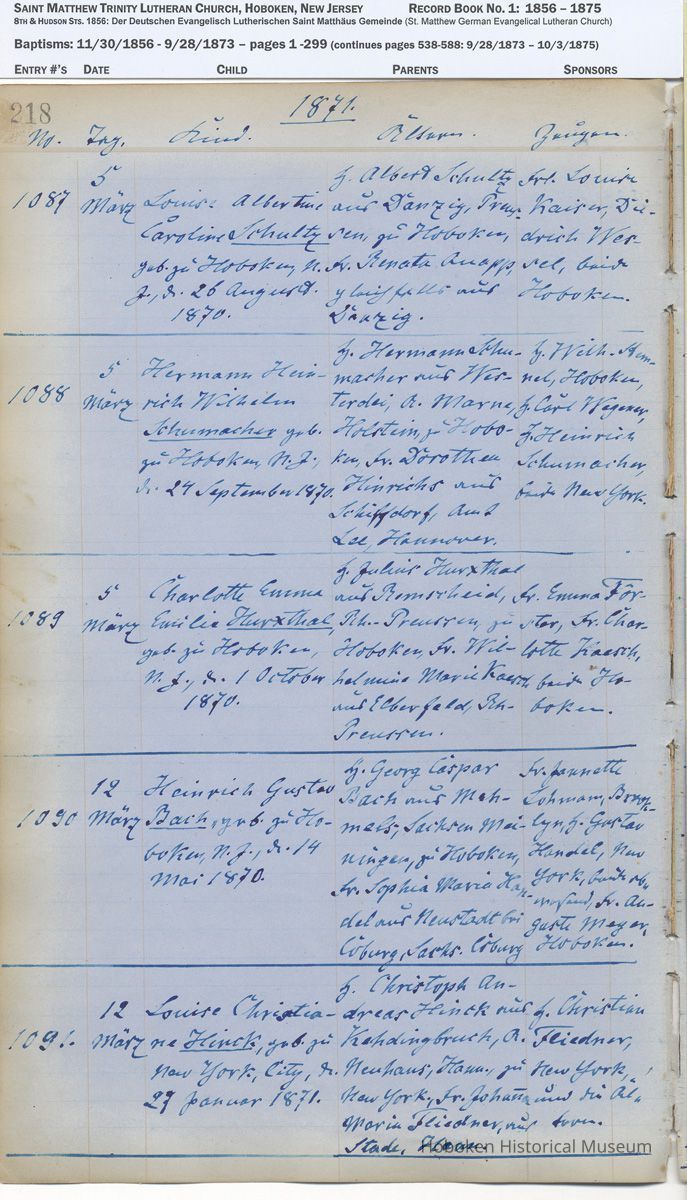 SAINT MATTHEW TRINITY LUTHERAN CHURCH, HOBOKEN, NEW JERSEY RECORD BOOK NO. 1: 1856 – 1875
8TH & HUDSON STS. 1856: Der Deutschen Evangelisch Lutherischen Saint Matthäus Gemeinde (St. Matthew German Evangelical Lutheran Church)
Baptisms: 11/30/1856 - 9/28/1873 – pages 1 -299 (continues pages 538-588: 9/28/1873 – 10/3/1875)
ENTRY #'S DATE CHILD PARENTS SPONSORS
218
1871.
No. Tag. Kind. Ältern. Zeugen.
1087
5
März
Louise Albertine
Caroline Schultz
geb. zu Hoboken, N.
J., d. 26 August
1870.
H. Albert Schultz
aus Danzig, Preus-
sen, zu Hoboken,
Fr. Renata Knapp,
gleichfalls aus
Danzig.
Frl. Louise
Kaiser, Die-
drich Wes-
sel, beide
Hoboken.
1088
5
März
Hermann Hein-
rich Wilhelm
Schumacher geb.
zu Hoboken, N. J.,
d. 24 September 1870.
H. Hermann Schu-
macher aus Wes-
A. Marne,
Holstein, zu Hobo-
ken, Fr. Dorothea
Hinrichs aus
Schiffdorf, Amt
Leé, Hannover.
H. Wilh.
Hoboken,
H. Carl Wegener,
H. Heinrich
Schumacher,
beide New York.
1089
5
März
Charlotte Emma
Emilie Hurxthal,
geb. zu Hoboken,
N. J., d. 1 October
1870.
H. Julius Hurxthal
aus Remscheid,
Rh.-Preussen, zu
Hoboken, Fr. Wil-
helmine Marie Kaesch
aus Elberfeld, Rh-
Preussen.
Fr. Emma För-
ster, Fr. Char-
lotte Kaesch,
beide Ho-
boken.
1090
12
März
Heinrich Gustav
Bach, geb. zu Ho-
boken, N. J., d. 14
Mai 1870.
H. Georg Caspar
Bach aus Meh-
mels, Sachsen Mei-
ningen, zu Hoboken,
Fr. Sophia Maria Han-
del aus Neustadt bei
Coburg, Sachs. Coburg
Fr. Jannette
Lohmann, Brook-
lyn, H. Gustav
Handel, New
York, beide
Fr. Au-
guste Meyer,
Hoboken.
1091.
12
März
Louise Christia-
ne Hinck, geb. zu
New York, City, d.
27 Januar 1871.
H. Christoph An-
dreas Hinck aus
Kehdingbruch, A.
Neuhaus, Hann., zu
New York, Fr. Johanna
Maria Fliedner, aus
Stade, Hann.
H. Christian
Fliedner,
New York,
und die Äl-
tern.
Hoboken Historical Museum